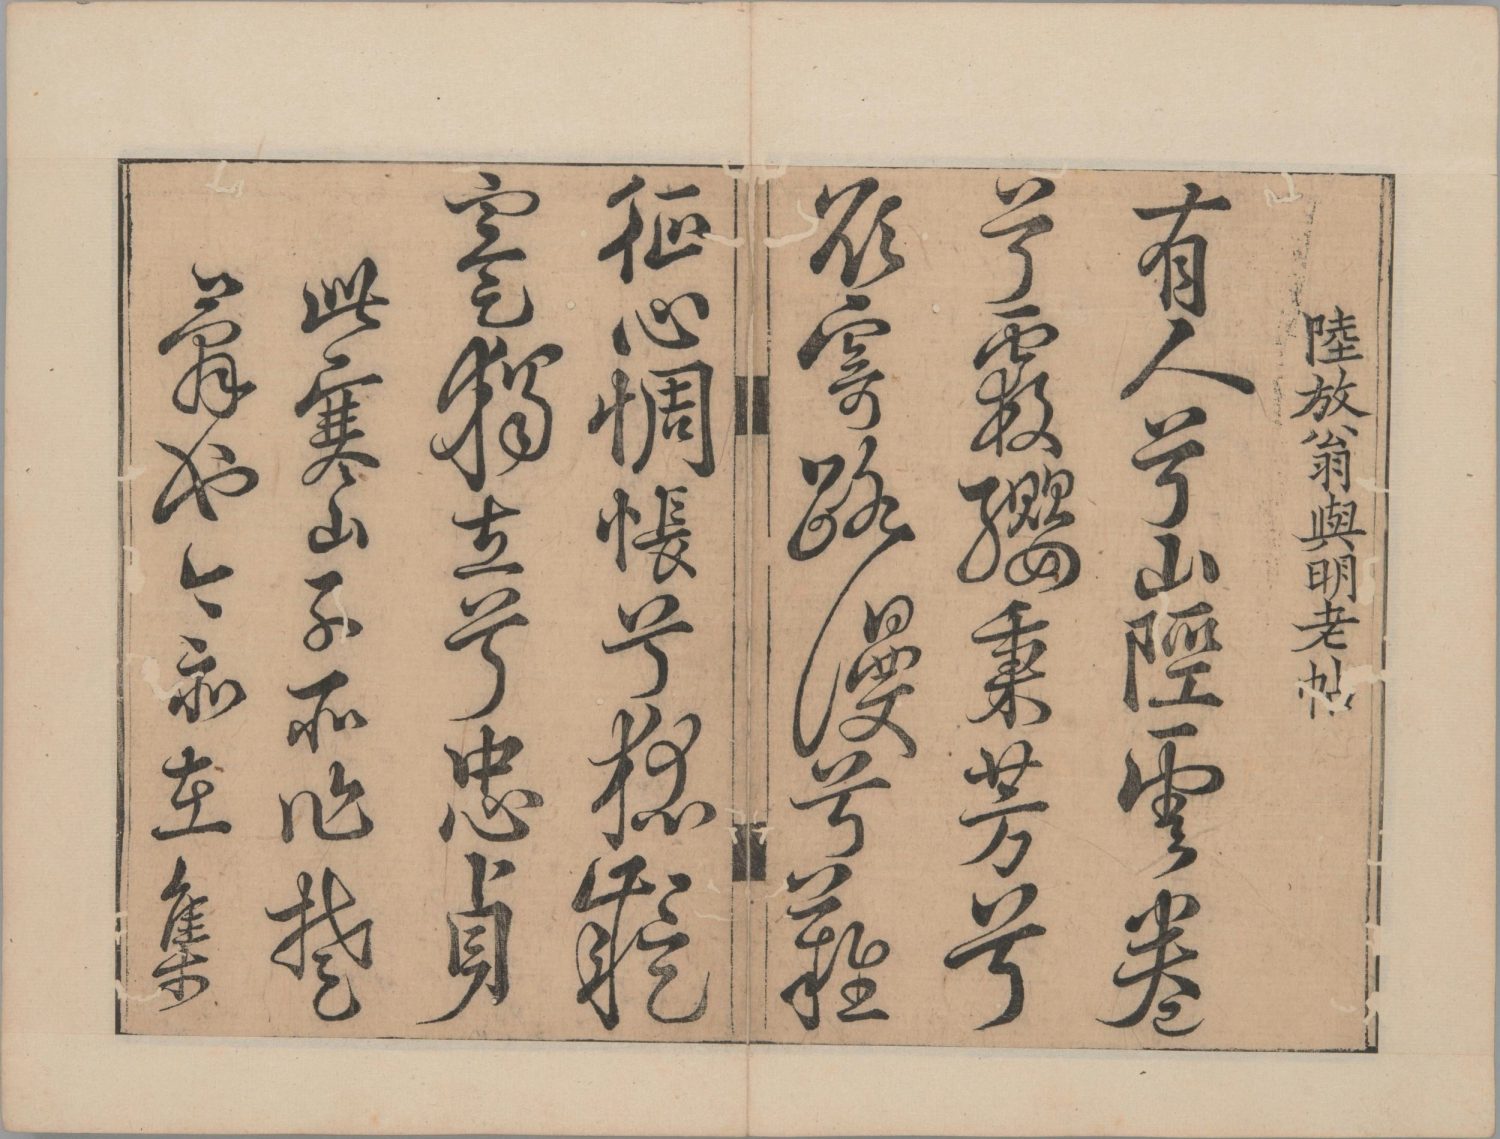 陸放翁與明老帖
有人兮山陘雲卷
兮霞纓秉芳兮
欲寄路漫兮難
征心惆悵兮狐疑
蹇獨立兮忠貞
此寒山子所作楚
辭也今亦在集